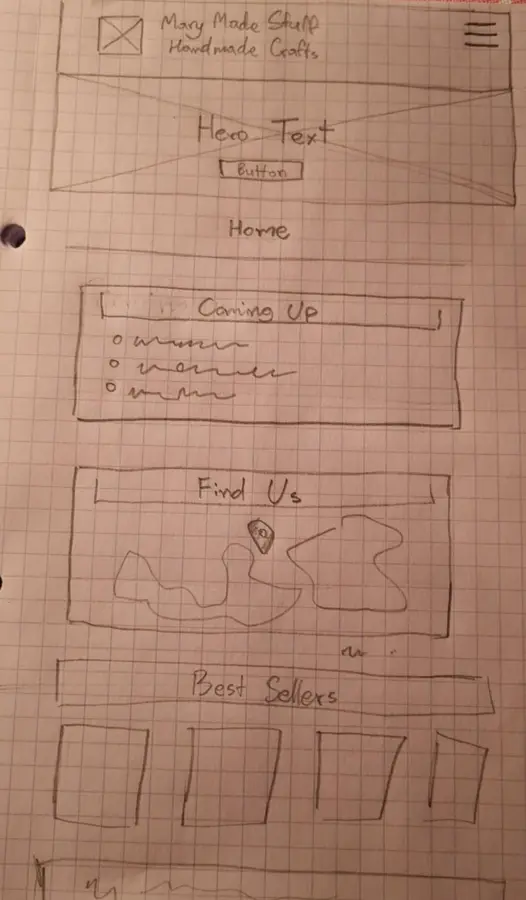 Mary Made Stuff
Handmade Crafts
Hero Text
Button
Home
Coming Up
Find Us
Best Sellers